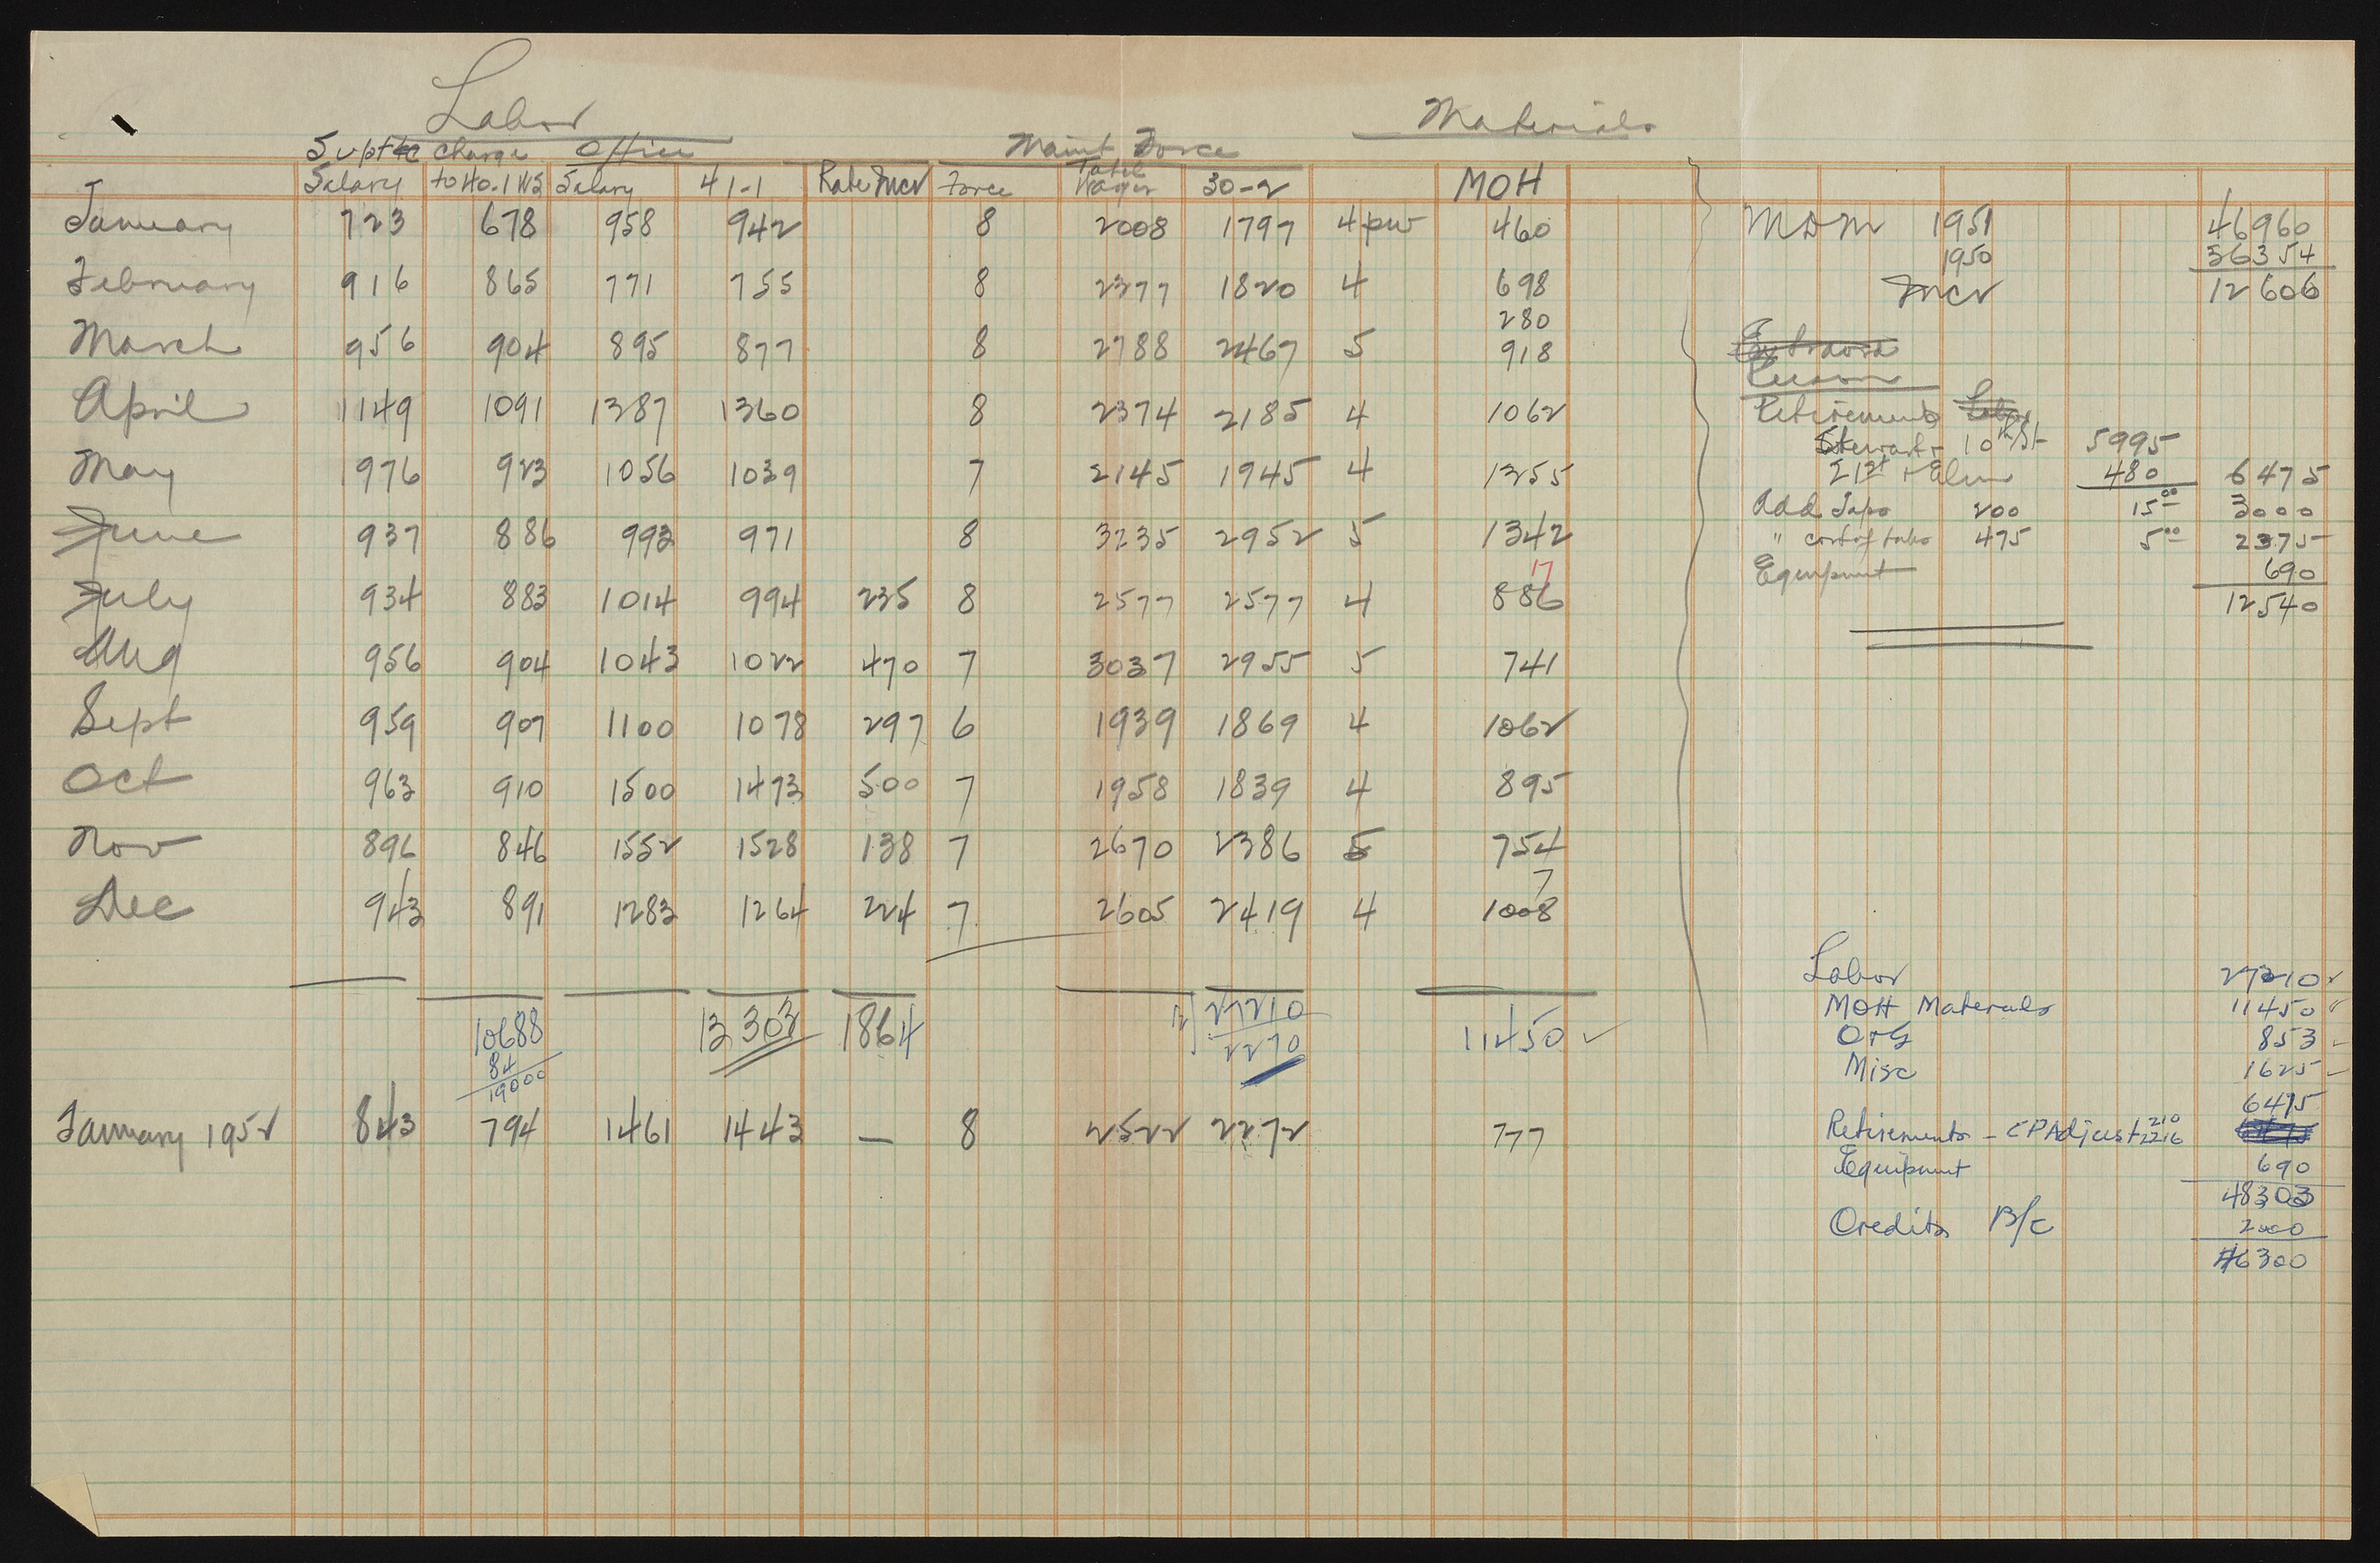 Labor Materials
Supt charge Office Maint Force
Salary to 40-1 W2 Salary 41-1 Rate Incr Force Total Wages 30-2 MOH
January 723 678 958 942 8 2008 1797 4 pw 460
February 916 865 771 755 8 2377 1820 4 698
280
March 956 904 895 877 8 2788 2467 5 918
April 1149 1091 1387 1360 8 2374 2185 4 1062
May 976 923 1056 1039 7 2145 1945 4 1255
June 937 886 993 971 8 3235 2952 5 1342
17
July 934 883 1014 994 235 8 2577 2577 4 886
Aug 956 904 1043 1022 470 7 3037 2955 5 741
Sept 959 907 1100 1078 297 6 1939 1869 4 1062
Oct 963 910 1500 1473 500 7 1958 1839 4 895
Nov 896 846 1552 1528 138 7 2670 2386 5 754
7
Dec 943 891 1283 1264 224 7 2605 2419 4 1008
10688 13303 1864 12 27210 11450 ✓
84 2270
19000
January 1952 843 794 1461 1443 — 8 2522 2272 777
MDM 1951 46960
1950 36354
Incr 12606
Reason
Retirements
Stewart - 10th St 5995
21st + Elm 480 6475
Add Taps 200 15 00 3000
" cost of tabs 475 5 00 2375
Equipment 690
12540
Labor 27210 ✓
MOH Materials 11450 ✓
Org 853 -
Misc 1625 -
6475
Retirements - CP Adjust 210 2216
Equipment 690
48303
Credits B/C 2000
46300